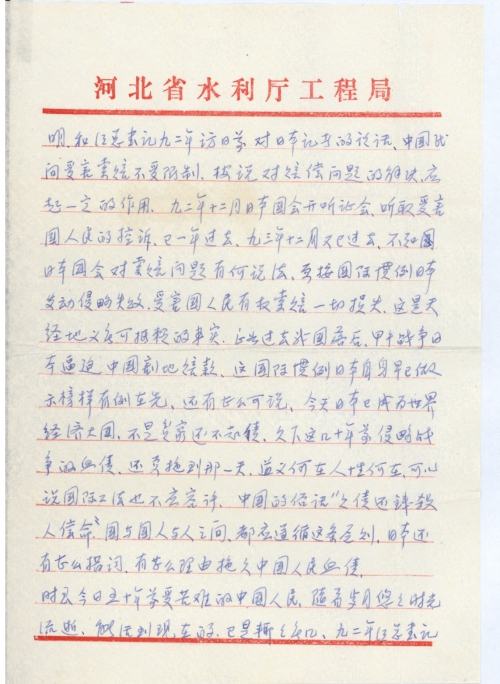 河北省水利厅工程局
明,和江总书记九二年访日前对日本记者的谈话、中国民
间受害索赔不受限制.按说对赔偿问题的解决,应
起一定的作用.九二年十二月日本国会开听证会、听取受害
国人民的控诉,已一年过去、九三年十二月又已过去、不知
日本国会对索赔问题有何说法,要按国际惯例日本
发动侵略失败、受害国人民有权索赔一切损失、这是天
经地义无可抵赖的事实.正如过去我国落后,甲午战争日
本逼迫中国割地赔款、这国际惯例日本自身早已做
示榜样有例在先、还有什么可说、今天日本已成为世界
经济大国,不是贫穷还不起债、欠下这几十年前侵略战
争的血债、还要拖到那一天、道义何在人性何在、可以
说国际公法也不应容许.中国的俗说"欠债还钱杀
人偿命"国与国人与人之间、都应遵循这条原则,日本还
有什么措词,有什么理由拖欠中国人民血债,
时至今日五十年前受苦难的中国人民,随着岁月悠悠时光
流逝、能活到现在的、已是 九二年江总书记